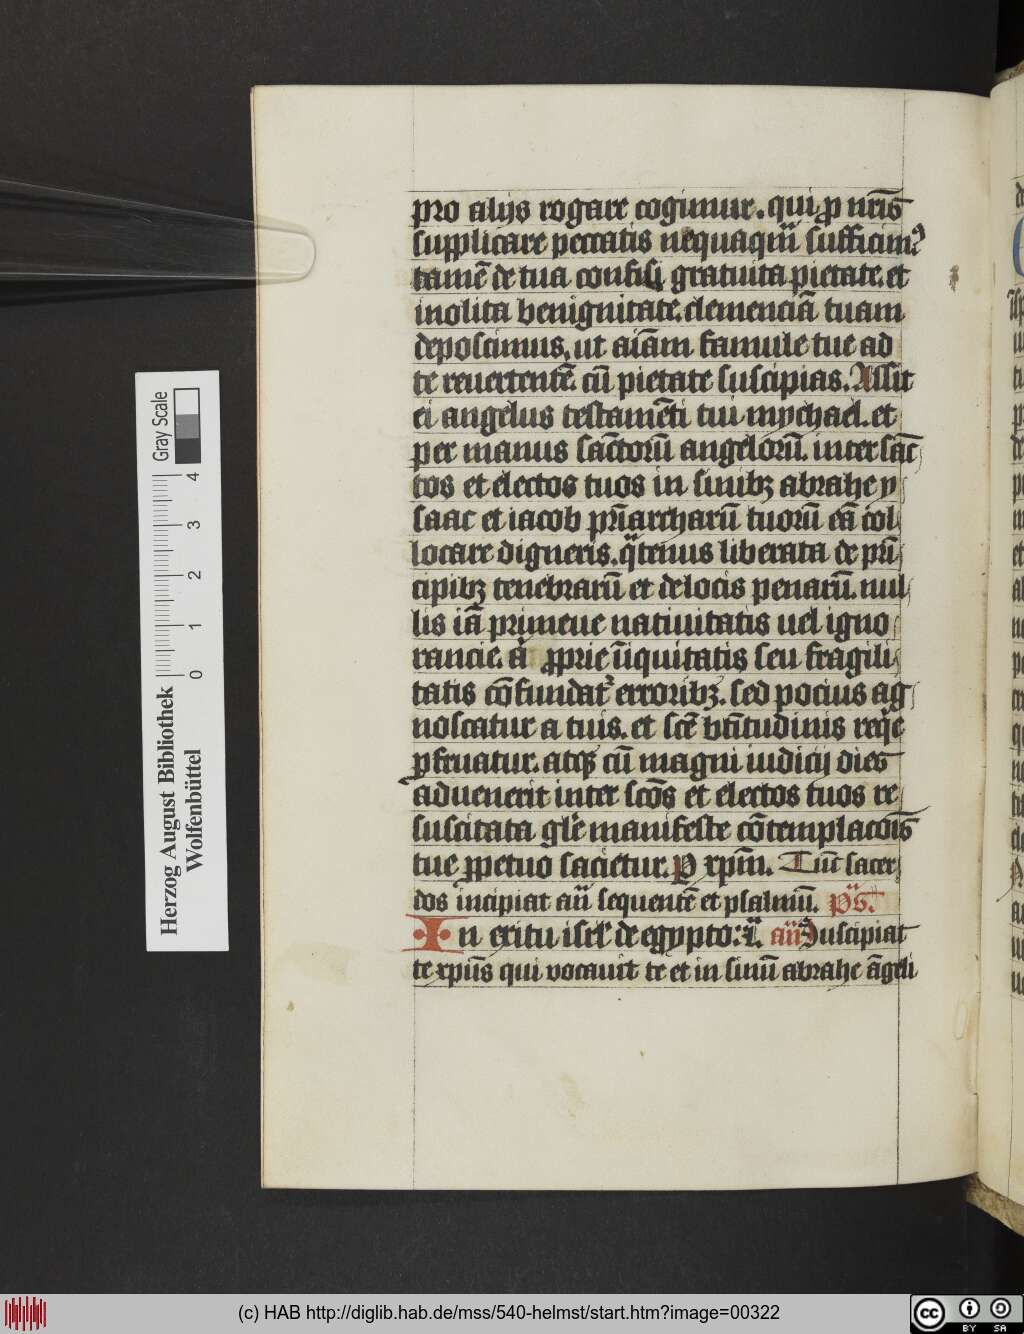 pro alijs rogare cogimur. qui ꝑ nr̄is
supplicare peccatis nequaqm̄ sufficimꝰ
tamē de tua confisi gratuita pietate. et
inolita benignitate. clemenciā tuam
deposcimus. ut aīam famule tue ad
te reuertentē cū pietate suscipias. Assit
ei angelus testamēti tui mychael. et
per manus sāctorū angelorū. inter sāc
tos et electos tuos in sinibꝫ abrahe y
saac et iacob pr̄iarcharū tuorū eā col
locare digneris. q̄tenus liberata de prī
cipibꝫ tenebrarū et de locis penarū. nul
lis iā primeue natiuitatis uel igno
rancie. a ꝓprie īiquitatis seu fragili
tatis cōfundatᷣ erroribꝫ. sed pocius ag
noscatur a tuis. et scē bt̄itudinis reqͥe
ꝑfruatur. atqꝫ cū magni iudicij dies
aduenerit inter scōs et electos tuos re
suscitata gl̄e manifeste cōtemplacōis
tue ꝑpetuo sacietur. P xpm̄. Tūc sacer
dos incipiat an̄ sequentē et psalmū. Ps.
In exitu isrl̄ de egypto: an̄ Suscipiat
te xpūs qui vocauit te et in sinū abrahe āgeli
Herzog August Bibliothek
Wolfenbüttel
0 1 2 3 4
Gray Scale
(c) HAB http://diglib.hab.de/mss/540-helmst/start.htm?image=00322
cc BY SA